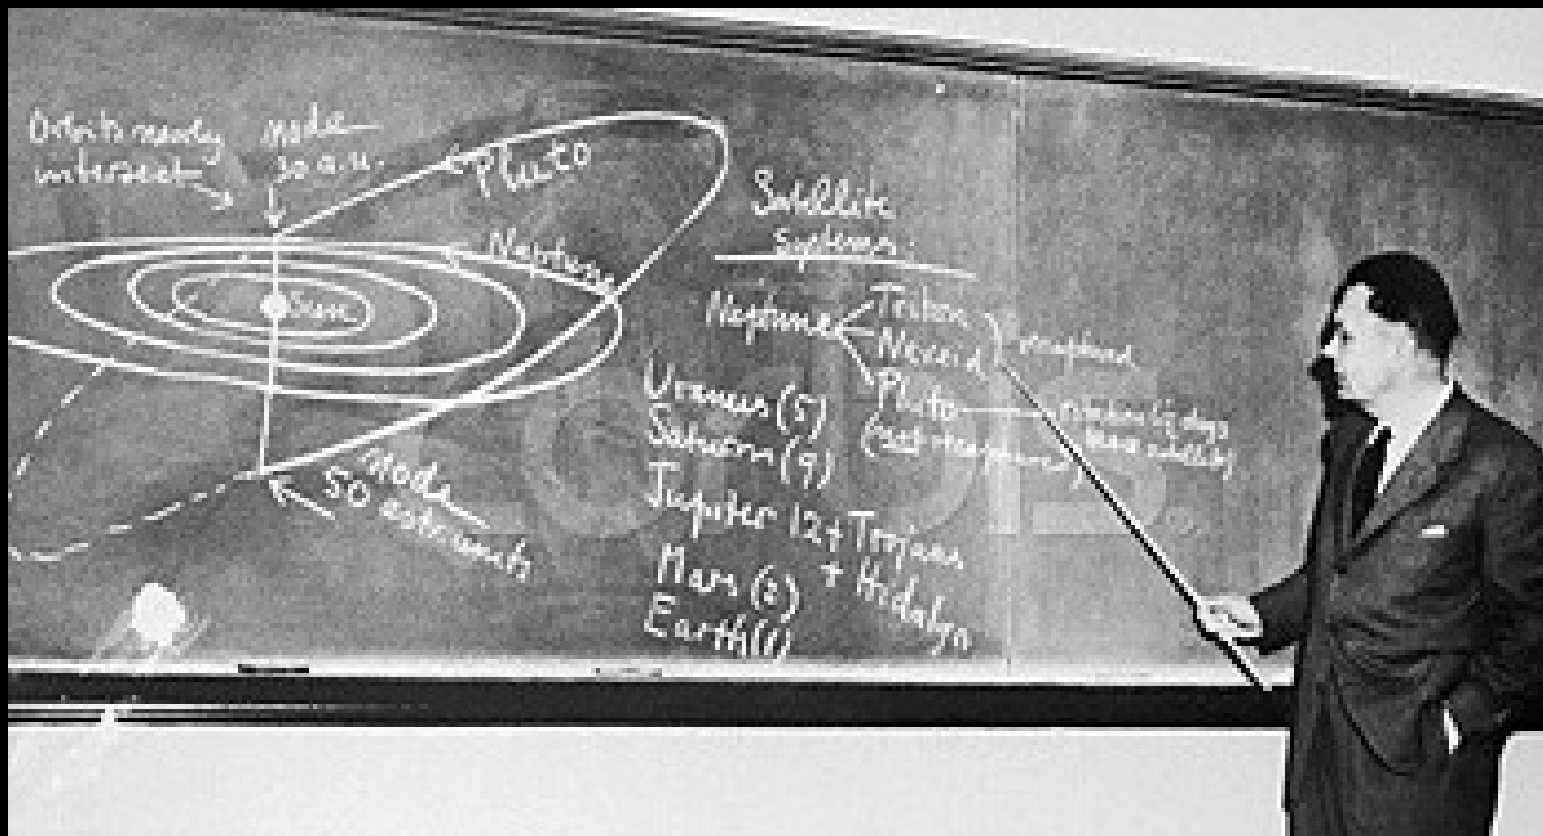 Orbits nearly
intersect
node
30 a.u.
Pluto
Neptune
Sun
node
50 astr units
Satellite
Systems:
Neptune
Triton
Nereid
Pluto
Uranus (5)
Saturn (9)
Jupiter 12 + Trojans
+ Hidalgo
Mars (2)
Earth (1)